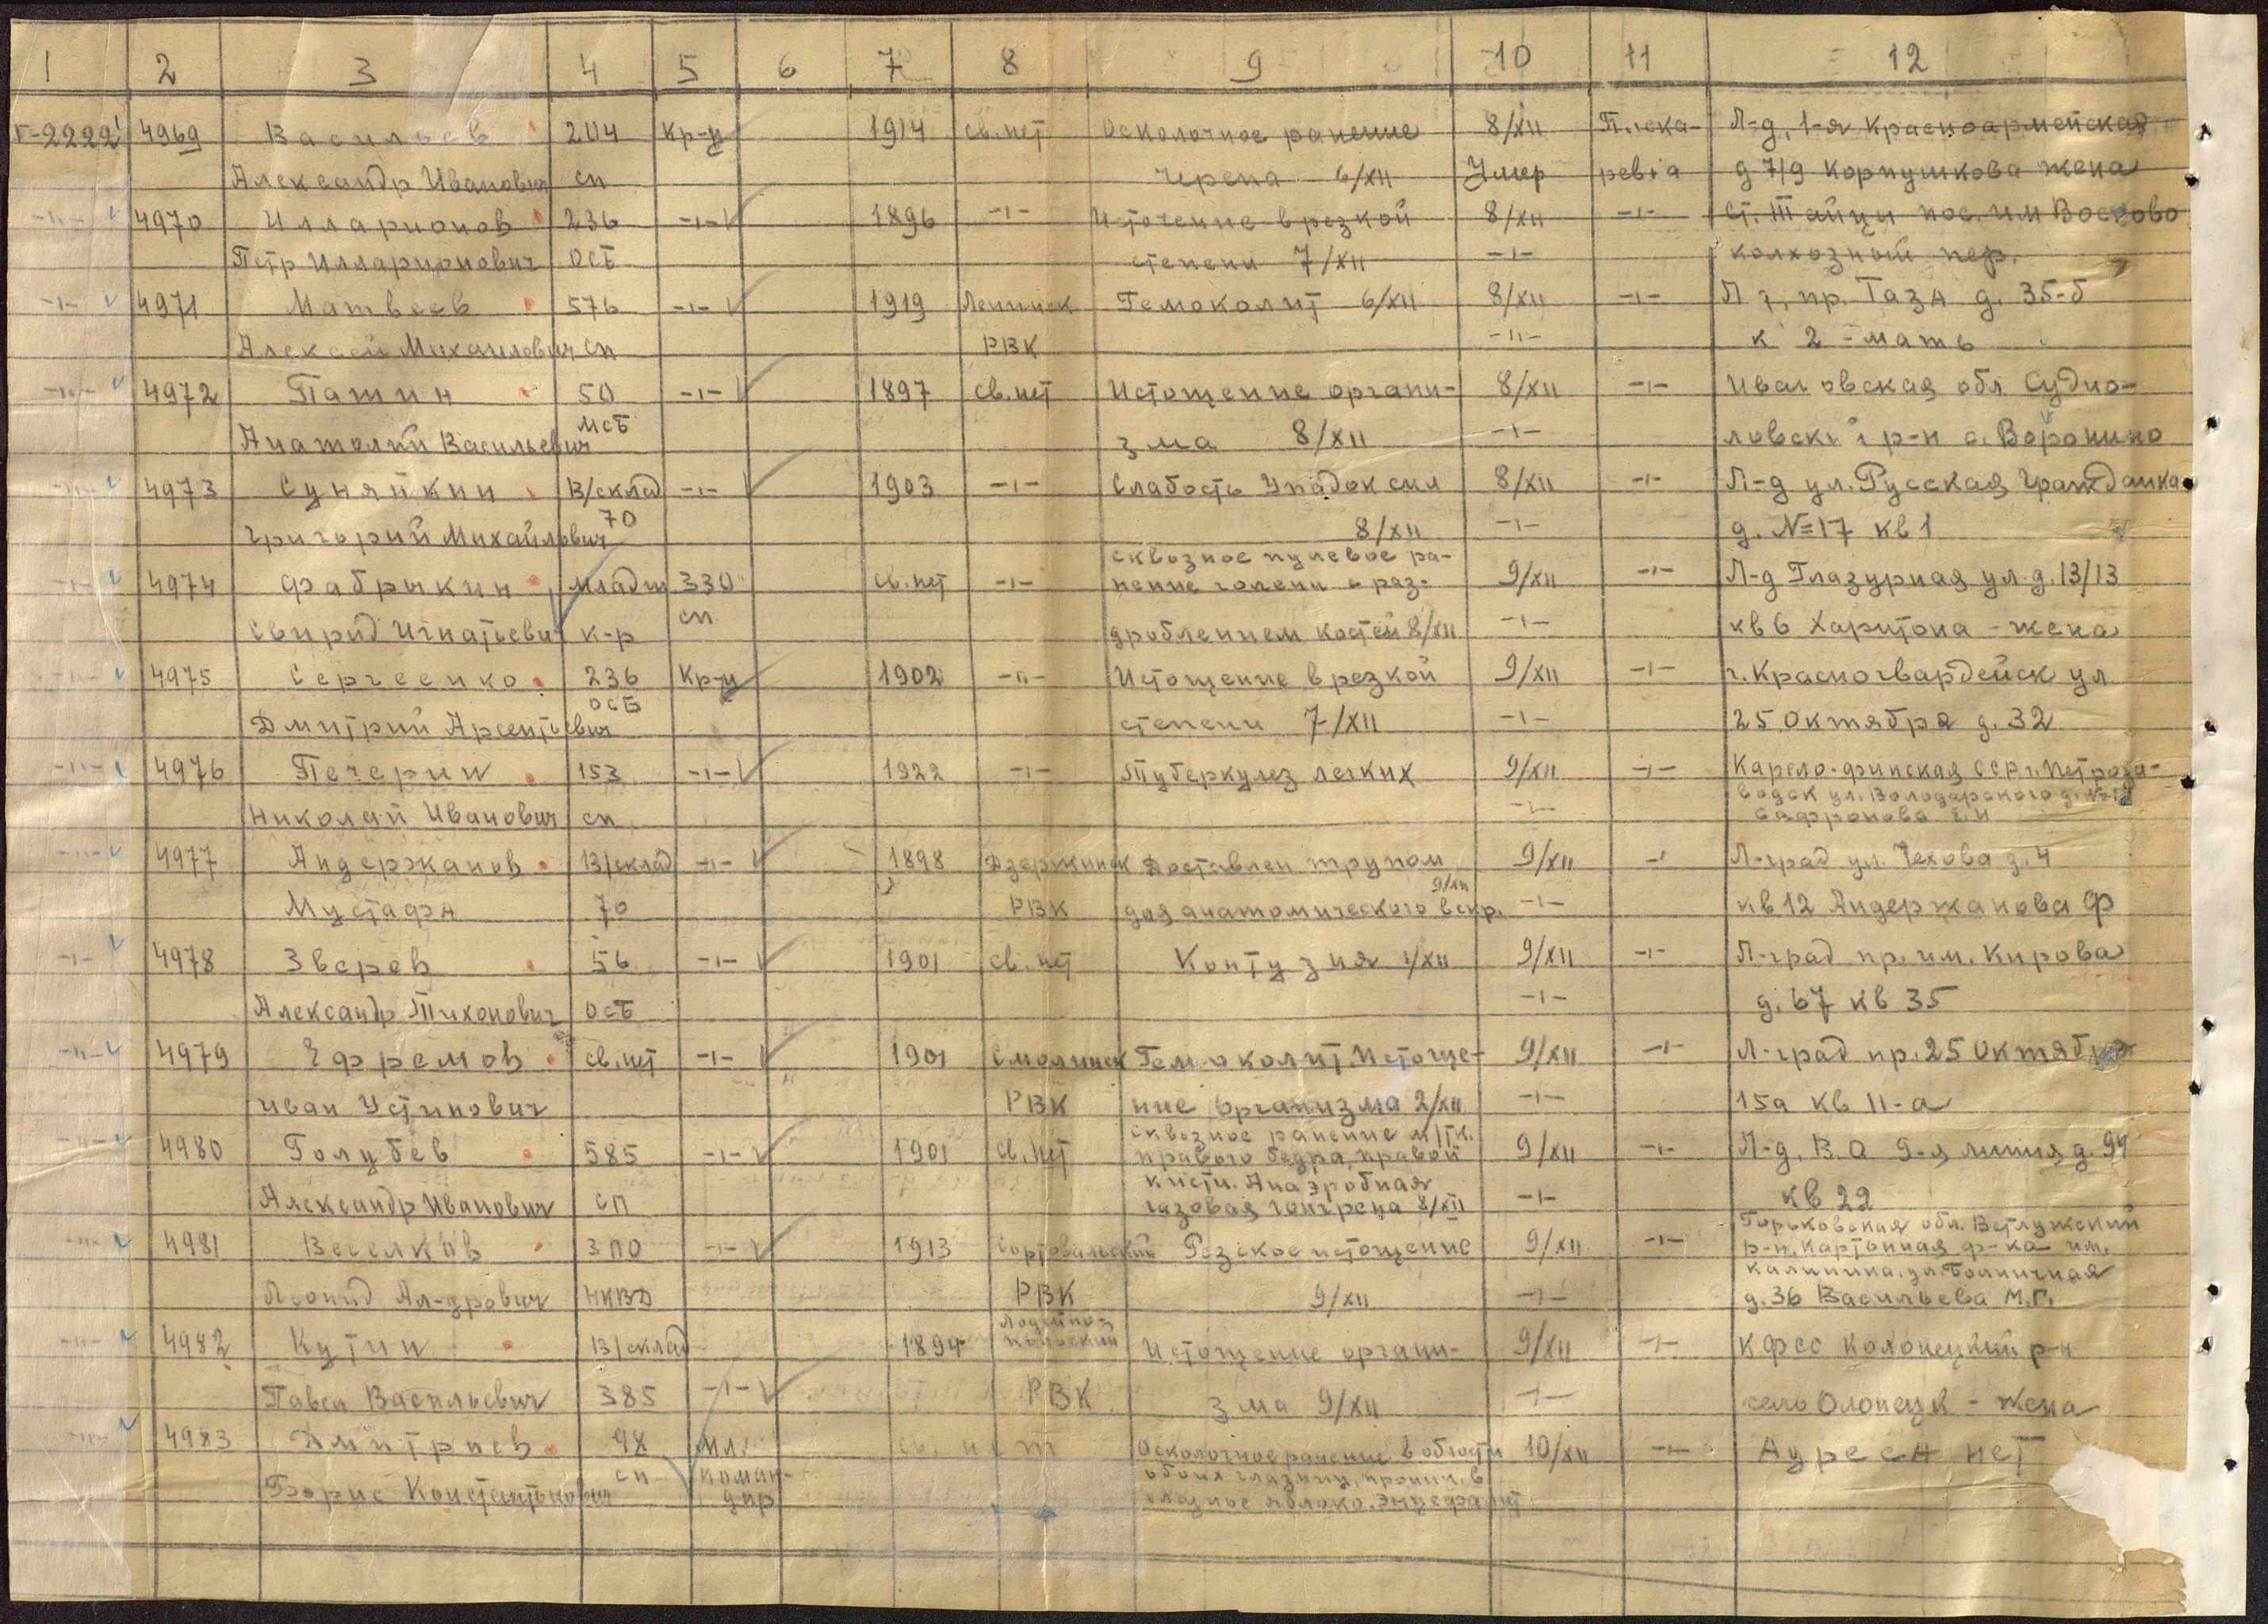 1 2 3 4 5 6 7 8 9 10 11 12
Г-2222 4969 Васильев 204 Кр-ц 1914 св.нет Осколочное ранение 8/XII Писка- Л-д, 1-я Красноармейская
Александр Иванович сп черепа 6/XII Умер ревка д 7/9 Корпушкова жена
-"- 4970 Илларионов 236 -"- 1896 -"- Источение в резкой 8/XII -"- ст. Тайцы пос. им Восково
Петр Илларионович ОСБ степени 7/XII -"- колхозный пер.
-"- 4971 Матвеев 576 -"- 1919 Ленинск Гемоколит 6/XII 8/XII -"- Л г, пр. Газа д. 35-б
Алексей Михайлович сп РВК -"- к 2 - мать
-"- 4972 Патин 50 -"- 1897 св.нет Истощение органи- 8/XII -"- Ивановская обл Судис-
Анатолий Васильевич МСБ зма 8/XII -"- ловский р-н с. Воронино
-"- 4973 Суняйкин В/склад -"- 1903 -"- Слабость Упадок сил 8/XII -"- Л-д ул. Русская Гражданка
Григорий Михайлович 70 8/XII -"- д. №17 кв 1
-"- 4974 Фабрыкин младш 330 св.нет -"- сквозное пулевое ра- 9/XII -"- Л-д Глазурная ул. д. 13/13
нение голени с раз-
Свирид Игнатьевич к-р сп дроблением костей 8/XII -"- кв 6 Харитона - жена
-"- 4975 Сергеенко 236 Кр-ц 1902 -"- Истощение в резкой 9/XII -"- г. Красногвардейск ул
Дмитрий Арсентьевич ОСБ степени 7/XII -"- 25 Октября д. 32
-"- 4976 Печерин 153 -"- 1922 -"- Туберкулез легких 9/XII -"- Карело-финская ССР г. Петроза-
водск ул. Володарского д. №
Николай Иванович сп -"- Сафронова Е.И
-"- 4977 Андержанов В/склад -"- 1898 Дзержинск Доставлен трупом 9/XII -"- Л-град ул. Чехова д. 4
9/XII
Мустафа 70 РВК для анатомического вскр. -"- кв 12 Андержанова Ф
-"- 4978 Зверев 56 -"- 1901 св. нет Контузия 1/XII 9/XII -"- Л-град пр. им. Кирова
Александр Тихонович ОСБ -"- д. 67 кв 35
-"- 4979 Ефремов св.нет -"- 1901 Смолинск Гемоколит. Истоще- 9/XII -"- Л-град пр. 25 Октября
Иван Устинович РВК ние организма 2/XII -"- 15а кв 11-а
-"- 4980 Голубев 585 -"- 1901 св. нет сквозное ранение м/тк. 9/XII -"- Л-д, В.О 9-я линия д. 94
правого бедра, правой
кисти. Анаэробная
Александр Иванович сп газовая гангрена 8/XII -"- кв 22
-"- 4981 Веселков 3 ПО -"- 1913 Сортовальский Резское истощение 9/XII -"- Горьковская обл. Ветлужский
р-н, Картонная ф-ка им.
Калинина, ул. Больничная
Леонид Ал-дрович НКВД РВК 9/XII -"- д. 36 Васильева М.Г.
-"- 4982 Кутин В/склад 1894 Лодейно- Истощение органи- 9/XII -"- КФСС Колонецкий р-н
польский
Павел Васильевич 385 -"- РВК зма 9/XII -"- село Олонецк - жена
-"- 4983 Дмитриев 98 мл. св. нет Осколочное ранение в области 10/XII -"- Адреса нет
сп коман- обоих глазниц, проник. в
Борис Константинович дир глазное яблоко. Энцефалит